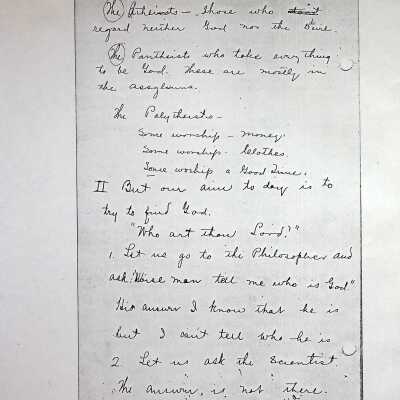 The Atheists - Those who don't
regard neither God nor the Devil.
The Pantheists who take everything
to be God. These are mostly in
the assylums.
The Polytheists -
Some worship - money.
Some worship - Clothes.
Some worhip a Good Time.
II But our aim to day is to
try to find God.
"Who art thou Lord?"
1. Let us go to the Philosopher and
ask "Wise man tell me who is God"
His answer I know that he is
but I can't tell who he is
2. Let us ask the Scientist.
The answer, is not there.